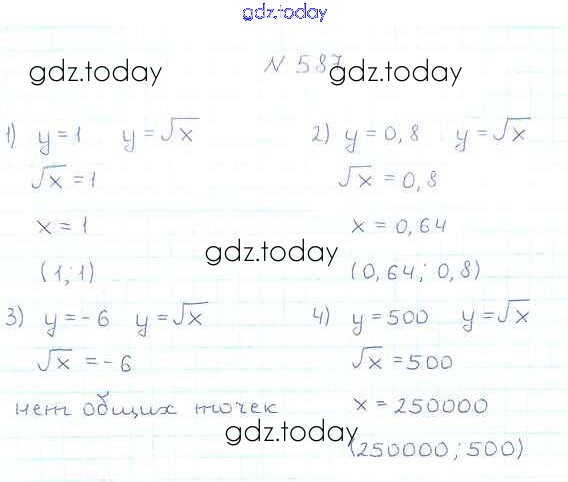 gdz.today
N 587
gdz.today gdz.today
1) y = 1 y = √x
√x = 1
x = 1
(1; 1)
2) y = 0,8 y = √x
√x = 0,8
x = 0,64
(0,64; 0,8)
gdz.today
3) y = - 6 y = √x
√x = - 6
нет общих точек
4) y = 500 y = √x
√x = 500
x = 250000
(250000; 500)
gdz.today